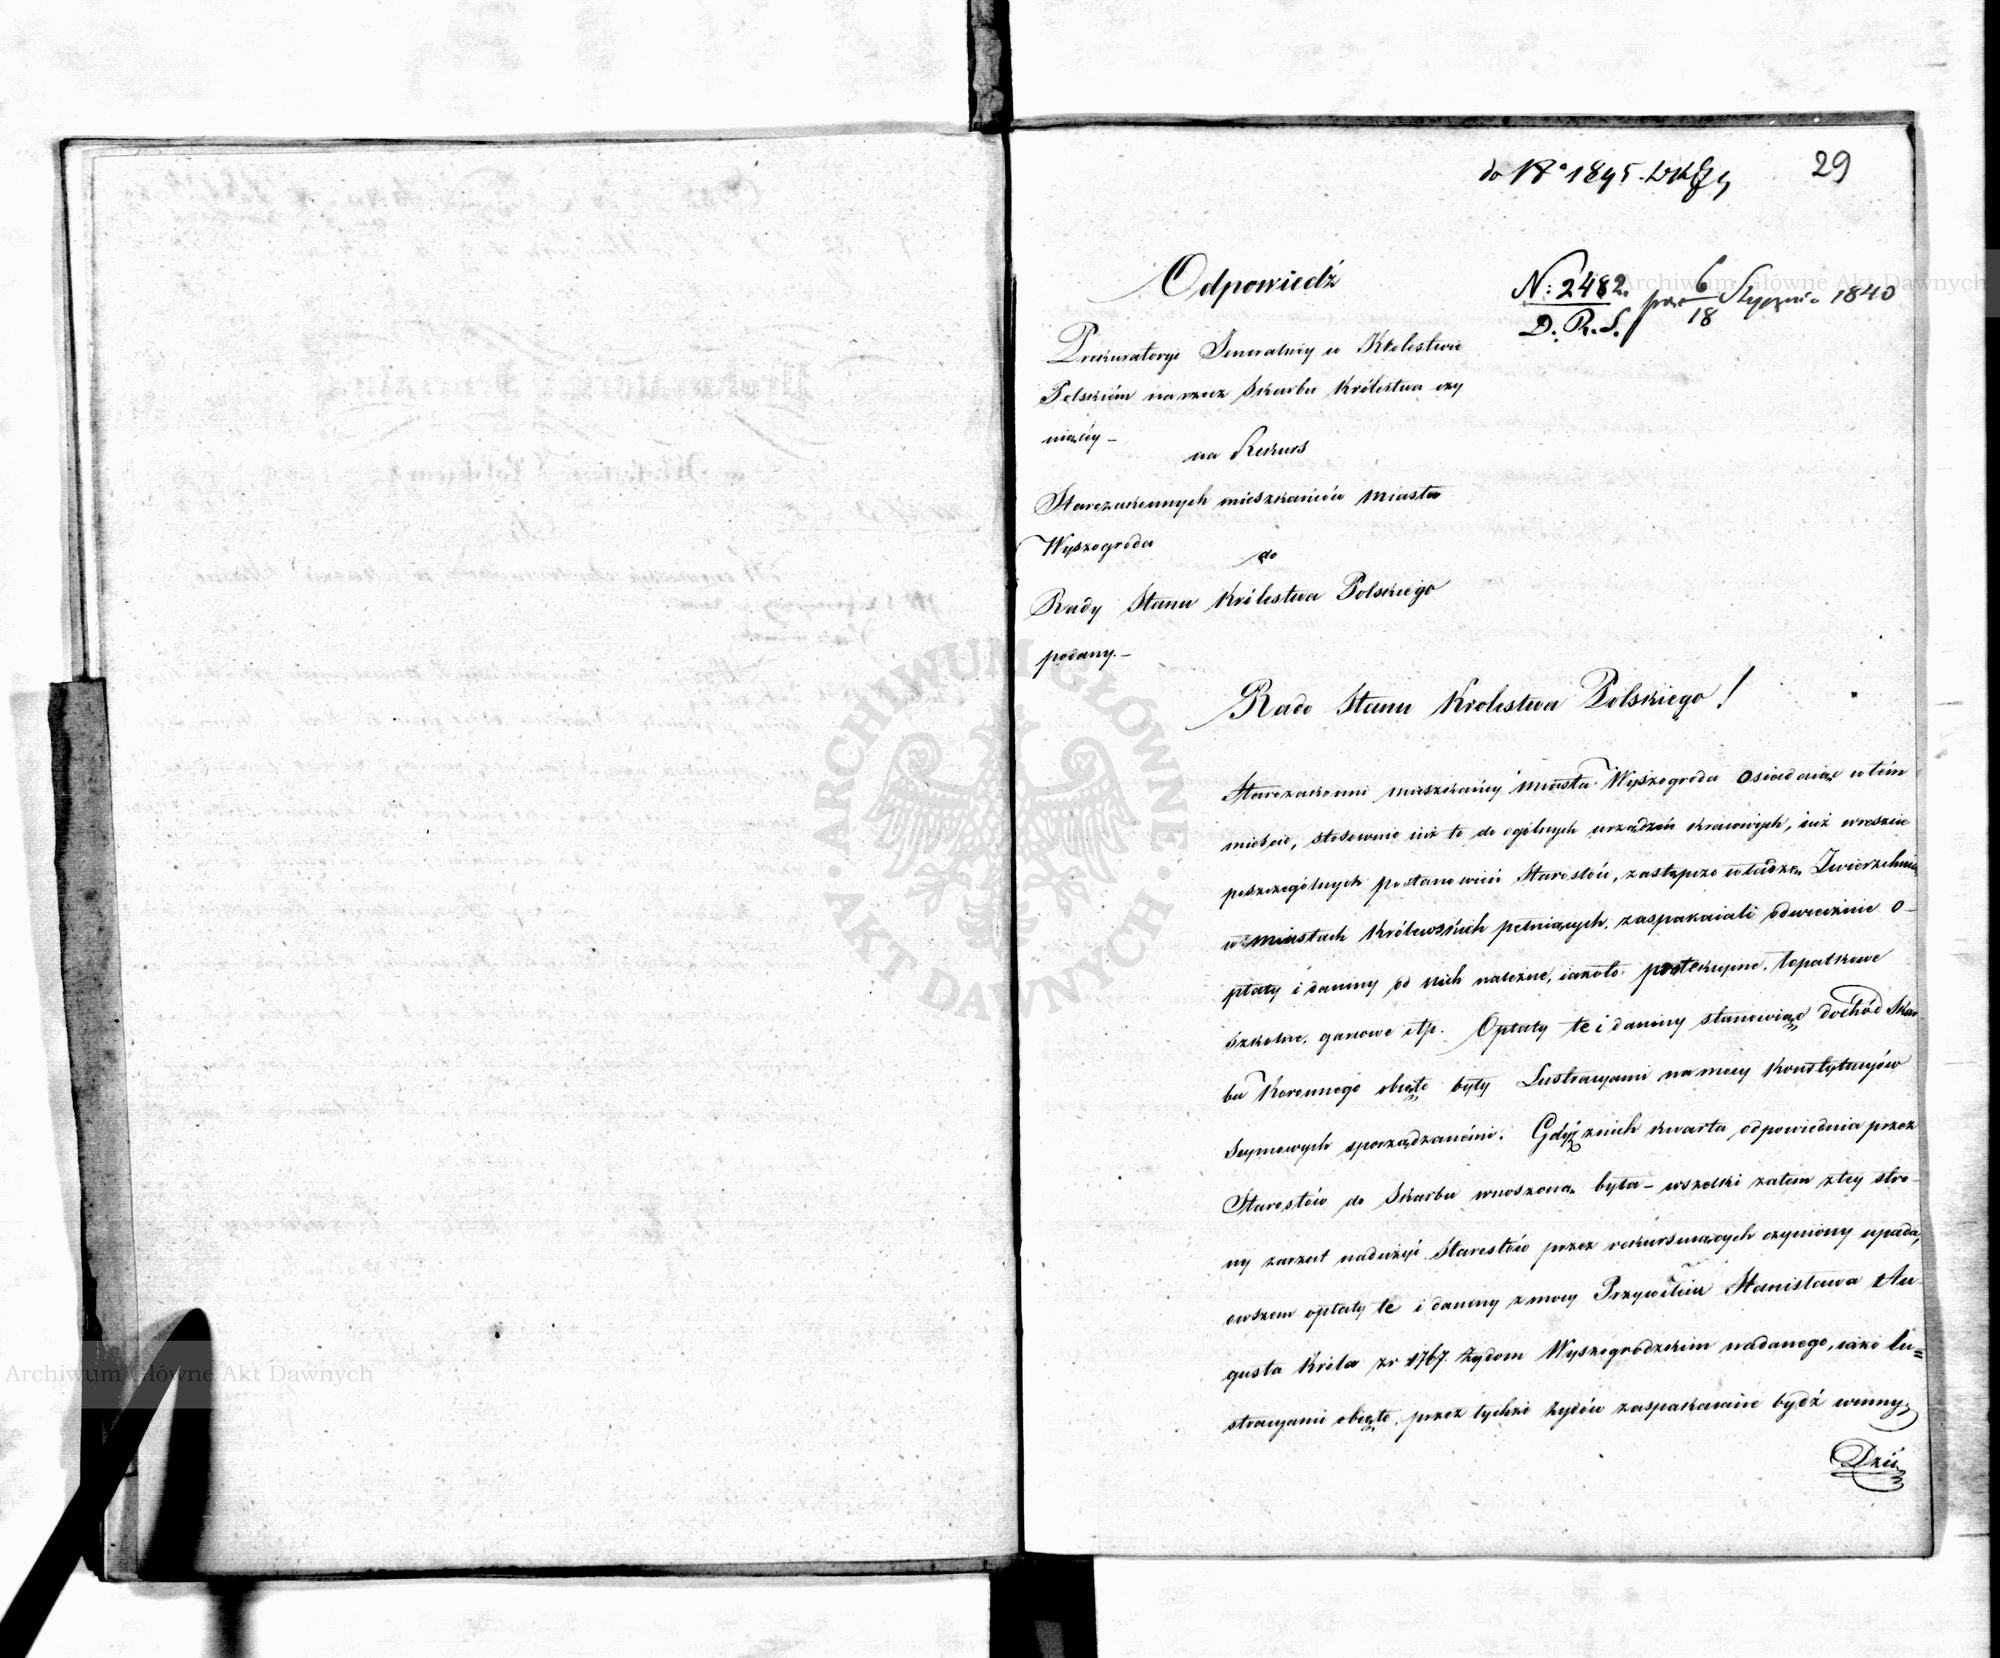 do N° 1895.
29
Odpowiedź
N: 2482. prez 6/18 Stycznia 1840
D. R. S.
Prokuratoryi Jeneralney w Królestwie
Polskiém na rzecz Skarbu Królestwa czy
niącéy –
na Rekurs
Starozakonnych mieszkańców miasta
Wyszogroda
do
Rady Stanu Królestwa Polskiego
podany. –
Rado Stanu Krolestwa Polskiego!
Starozakonni mieszkańcy miasta Wyszogroda osiadaiąc w tém
mieście, stosownie iuż to do ogólnych urządzeń kraiowych, iuż wreszcie
poszczególnych postanowień Starostów, zastępczo władzę Zwierzchnią
w miastach Królewskich pełniących, zaspakaiali odwiecznie o–
płaty i daniny od nich należne, iakoto: pogłowne, łopatkowe
szkolne, garcowe itp. Opłaty te i daniny stanowiąc dochód Skar
bu Koronnego obięte były Lustracyami na mocy Konstytucyów
Seymowych sporządzanémi. Gdyż z nich kwarta odpowiednia przez
Starostów do Skarbu wnoszoną była – wszelki zatem z téy stro–
ny zarzut nadużyć Starostów przez rekursuiących czyniony upada,
owszem opłaty te i daniny z mocy Przywileiu Stanisława Au–
gusta Króla z r. 1767. Żydom Wyszogrodzkim nadanego, iako lu=
stracyami obięte, przez tychże Żydów zaspakaiane bydź winny,
Dziś